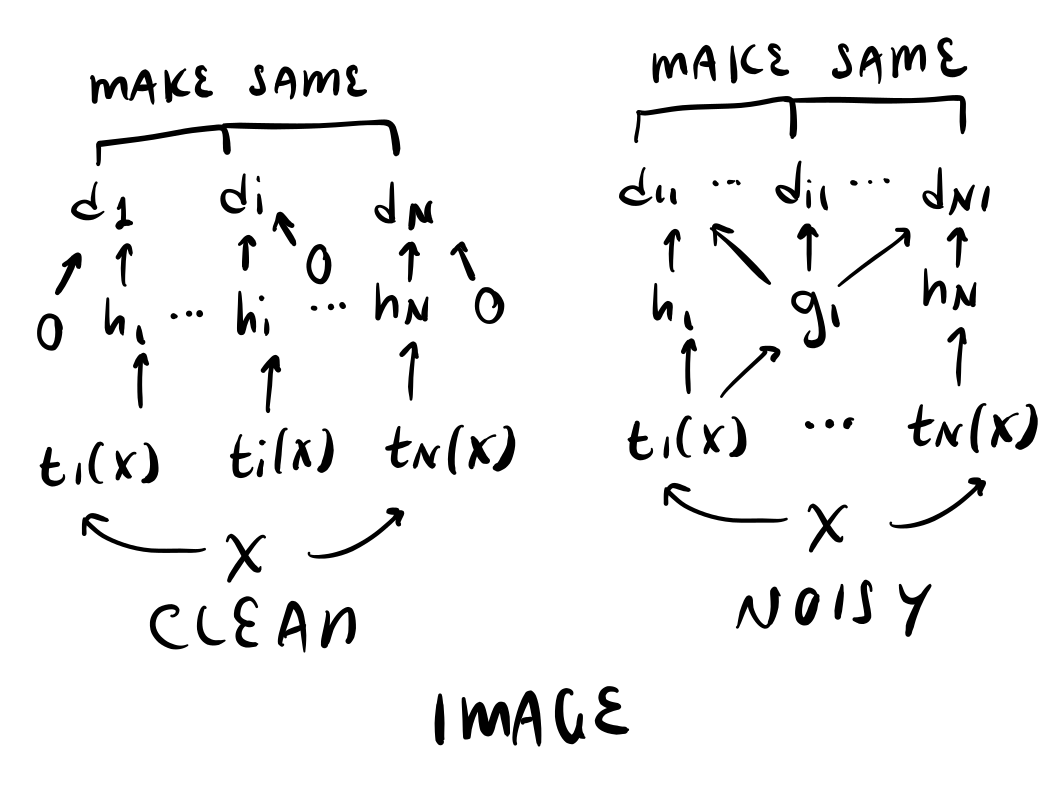 MAKE SAME
d1 di dN
0 h1 ... hi 0 ... hN 0
t1(x) ti(x) tN(x)
X
CLEAN
MAKE SAME
d11 ... di1 ... dN1
h1 g1 hN
t1(x) ... tN(x)
X
NOISY
IMAGE